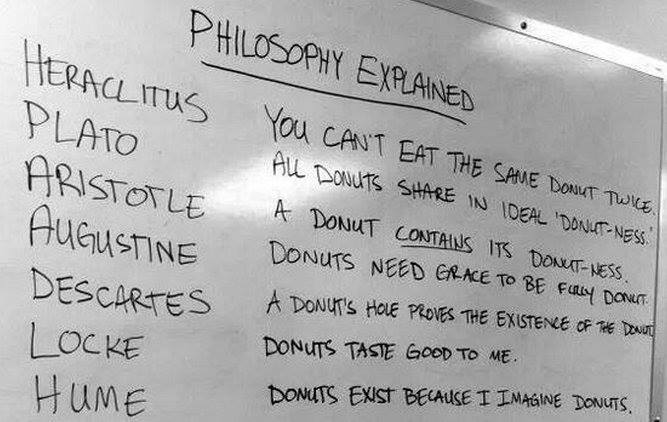 PHILOSOPHY EXPLAINED
HERACLITUS YOU CAN'T EAT THE SAME DONUT TWICE.
PLATO ALL DONUTS SHARE IN IDEAL 'DONUT-NESS.'
ARISTOTLE A DONUT CONTAINS ITS DONUT-NESS.
AUGUSTINE DONUTS NEED GRACE TO BE FULLY DONUT.
DESCARTES A DONUT'S HOLE PROVES THE EXISTENCE OF THE DONUT
LOCKE DONUTS TASTE GOOD TO ME.
HUME DONUTS EXIST BECAUSE I IMAGINE DONUTS.